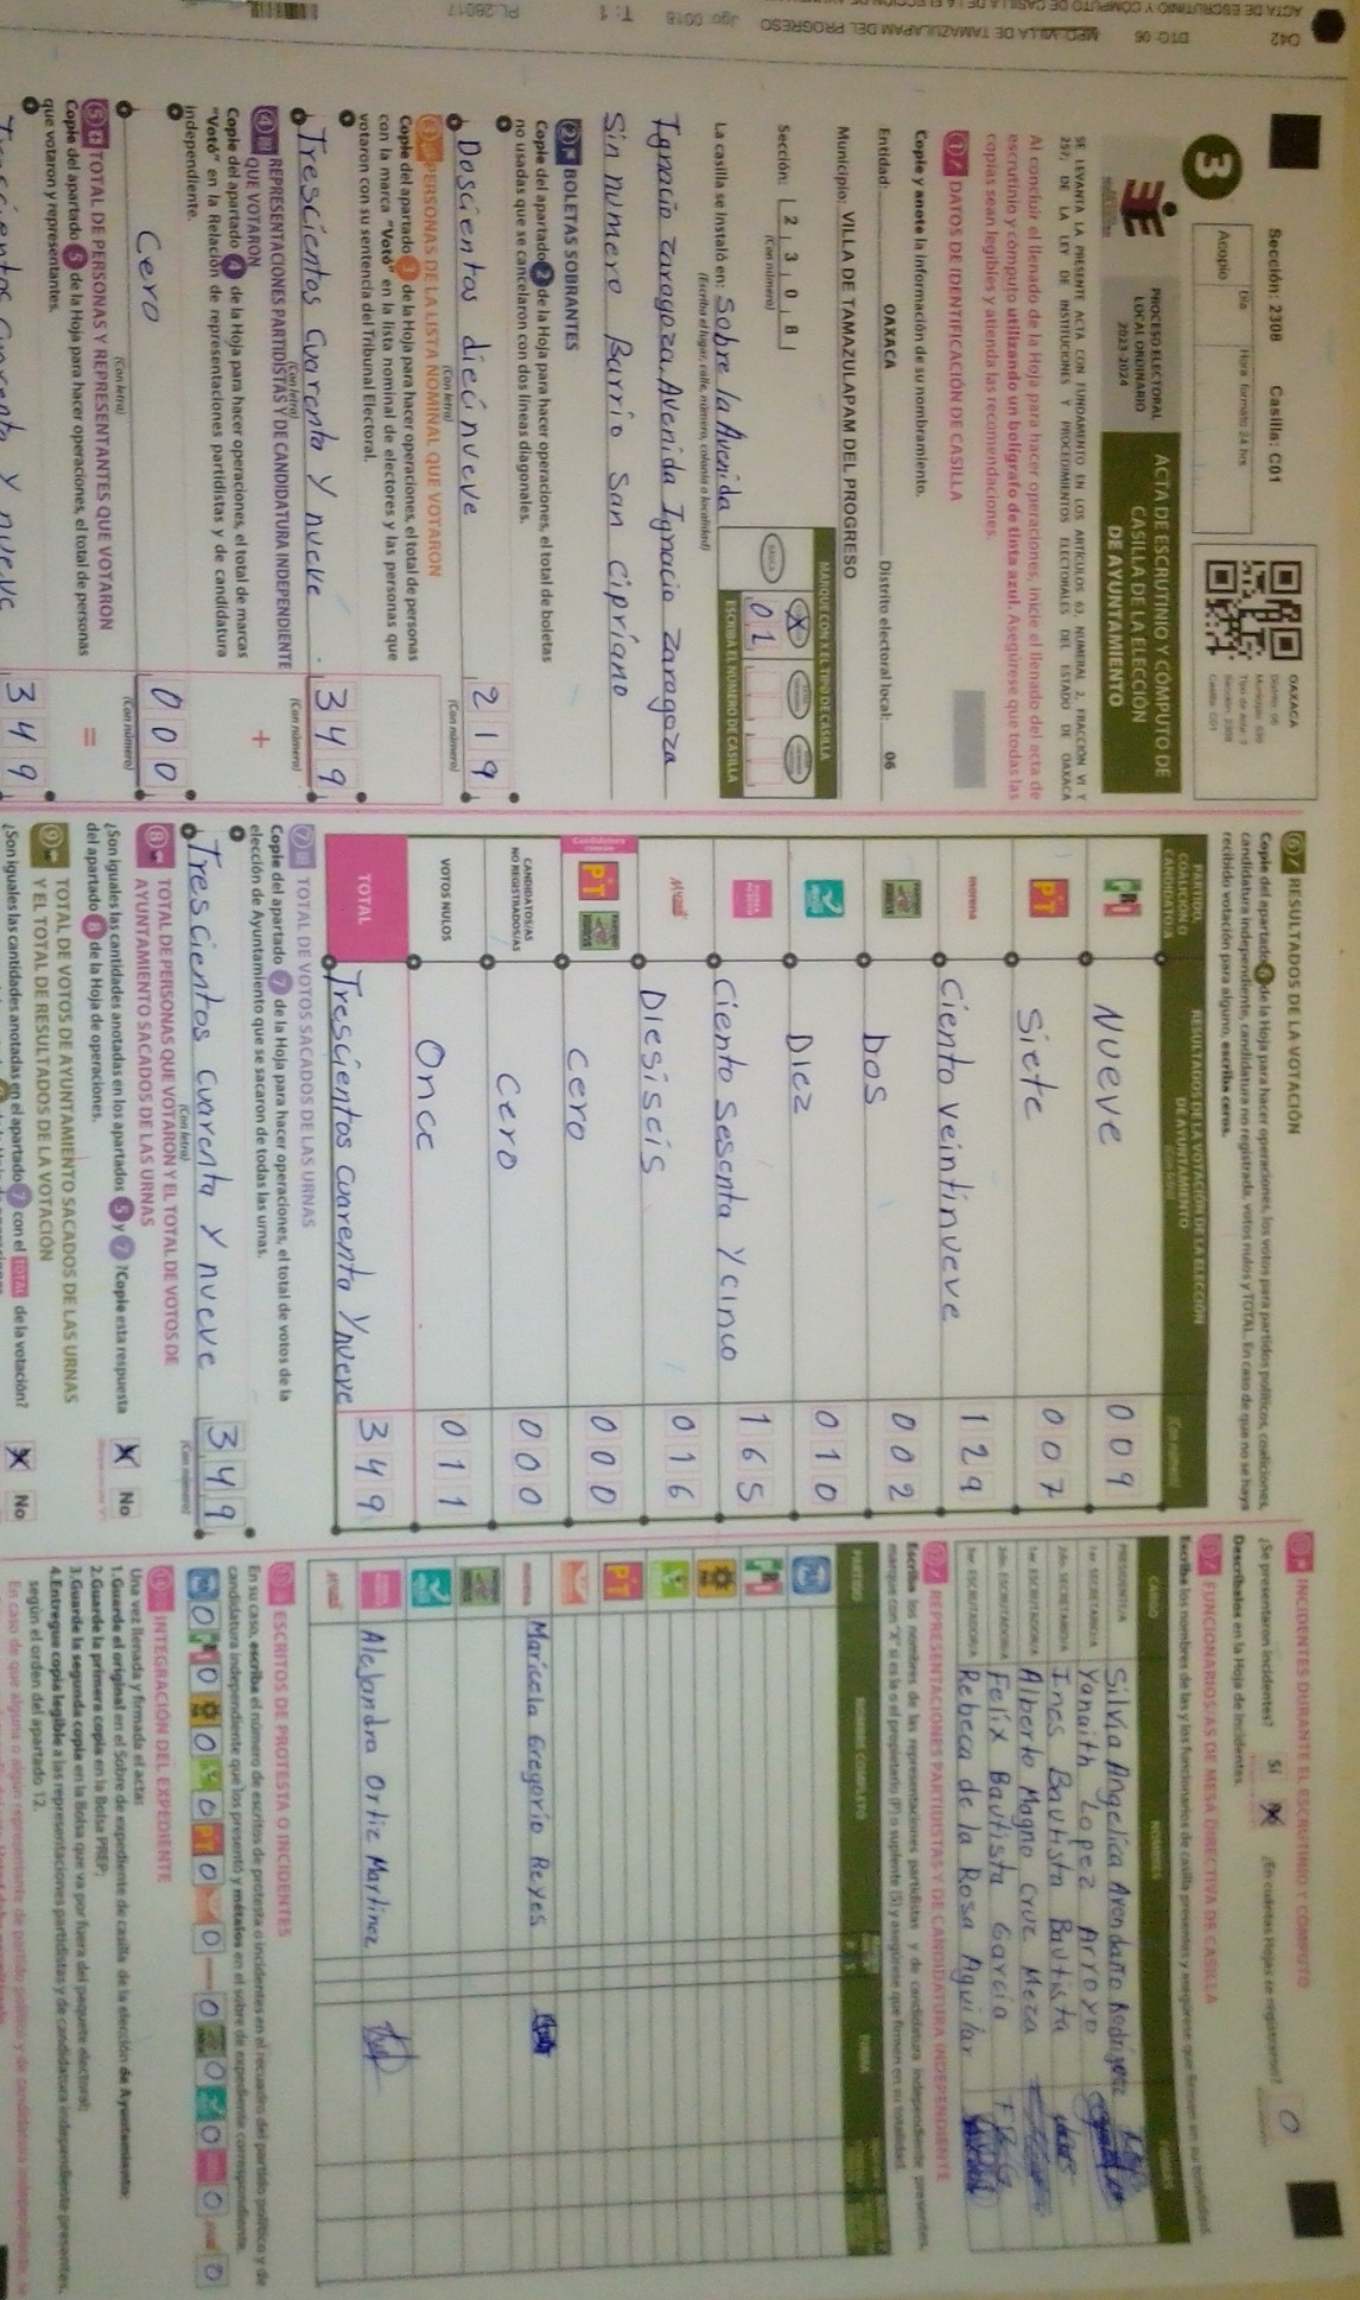 Sección: 2308 Casilla: C01
3
Acopio
Día
Hora formato 24 hrs
OAXACA
PROCESO ELECTORAL
LOCAL ORDINARIO
2023-2024
ACTA DE ESCRUTINIO Y CÓMPUTO DE
CASILLA DE LA ELECCIÓN
DE AYUNTAMIENTO
SE LEVANTA LA PRESENTE ACTA CON FUNDAMENTO EN LOS ARTÍCULOS 63, NUMERAL 2, FRACCIÓN VI Y
257, DE LA LEY DE INSTITUCIONES Y PROCEDIMIENTOS ELECTORALES DEL ESTADO DE OAXACA
Al concluir el llenado de la Hoja para hacer operaciones, inicie el llenado del acta de
escrutinio y cómputo utilizando un bolígrafo de tinta azul. Asegúrese que todas las
copias sean legibles y atienda las recomendaciones.
1 DATOS DE IDENTIFICACIÓN DE CASILLA
Copie y anote la información de su nombramiento.
Entidad: OAXACA Distrito electoral local: 06
Municipio: VILLA DE TAMAZULAPAM DEL PROGRESO
Sección: 2 3 0 8
(Con número)
MARQUE CON X EL TIPO DE CASILLA
X
ESCRIBA EL NÚMERO DE CASILLA
0 1
La casilla se instaló en: Sobre la Avenida
(Escriba el lugar, calle, número, colonia o localidad)
Ignacio Zaragoza. Avenida Ignacio Zaragoza
Sin numero Barrio San Cipriano
2 BOLETAS SOBRANTES
Copie del apartado 2 de la Hoja para hacer operaciones, el total de boletas
no usadas que se cancelaron con dos líneas diagonales.
Doscientos diecinueve 219
(Con letra) (Con número)
3 PERSONAS DE LA LISTA NOMINAL QUE VOTARON
Copie del apartado 3 de la Hoja para hacer operaciones, el total de personas
con la marca "Votó" en la lista nominal de electores y las personas que
votaron con su sentencia del Tribunal Electoral.
Trescientos Cuarenta Y nueve 349
(Con letra) (Con número)
4 REPRESENTACIONES PARTIDISTAS Y DE CANDIDATURA INDEPENDIENTE
QUE VOTARON
Copie del apartado 4 de la Hoja para hacer operaciones, el total de marcas
"Votó" en la Relación de representaciones partidistas y de candidatura
independiente.
+
Cero 000
(Con letra) (Con número)
5 TOTAL DE PERSONAS Y REPRESENTANTES QUE VOTARON
Copie del apartado 5 de la Hoja para hacer operaciones, el total de personas
que votaron y representantes.
=
Trescientos Cuarenta Y nueve 349
6 RESULTADOS DE LA VOTACIÓN
Copie del apartado 6 de la Hoja para hacer operaciones, los votos para partidos políticos, coaliciones,
candidatura independiente, candidatura no registrada, votos nulos y TOTAL. En caso de que no se haya
recibido votación para alguno, escriba ceros.
PARTIDO, COALICIÓN O CANDIDATO/A
RESULTADOS DE LA VOTACIÓN DE LA ELECCIÓN
DE AYUNTAMIENTO
(Con número)
PRI Nueve 009
PT Siete 007
morena Ciento veintinueve 129
Dos 002
Diez 010
Ciento Sesenta Y cinco 165
Diesiseis 016
PT Cero 000
CANDIDATOS/AS NO REGISTRADOS/AS Cero 000
VOTOS NULOS Once 011
TOTAL Trescientos Cuarenta Y nueve 349
7 TOTAL DE VOTOS SACADOS DE LAS URNAS
Copie del apartado 7 de la Hoja para hacer operaciones, el total de votos de la
elección de Ayuntamiento que se sacaron de todas las urnas.
Trescientos Cuarenta Y nueve 349
(Con letra) (Con número)
8 TOTAL DE PERSONAS QUE VOTARON Y EL TOTAL DE VOTOS DE
AYUNTAMIENTO SACADOS DE LAS URNAS
¿Son iguales las cantidades anotadas en los apartados 5 y 7? Copie esta respuesta
del apartado 8 de la Hoja de operaciones.
X No
9 TOTAL DE VOTOS DE AYUNTAMIENTO SACADOS DE LAS URNAS
Y EL TOTAL DE RESULTADOS DE LA VOTACIÓN
¿Son iguales las cantidades anotadas en el apartado 7 con el TOTAL de la votación?
X No
INCIDENTES DURANTE EL ESCRUTINIO Y CÓMPUTO
¿Se presentaron incidentes? Sí ¿En cuántas Hojas se registraron? 0
Descríbalos en la Hoja de Incidentes.
FUNCIONARIOS/AS DE MESA DIRECTIVA DE CASILLA
Escriba los nombres de las y los funcionarios de casilla presentes y asegúrese que firmen en su totalidad.
CARGO NOMBRES FIRMAS
PRESIDENTE/A Silvia Angelica Avendaño Rodriguez
1er. SECRETARIO/A Yanaith Lopez Arroyo
2do. SECRETARIO/A Ines Bautista Bautista
1er. ESCRUTADOR/A Alberto Magno Cruz Meza
2do. ESCRUTADOR/A Felix Bautista Garcia
3er. ESCRUTADOR/A Rebeca de la Rosa Aguilar
REPRESENTACIONES PARTIDISTAS Y DE CANDIDATURA INDEPENDIENTE
Escriba los nombres de las representaciones partidistas y de candidatura independiente presentes,
marque con "X" si es la o el propietario (P) o suplente (S) y asegúrese que firmen en su totalidad.
PARTIDO NOMBRE COMPLETO FIRMA
PRI
PT
morena Maricela Gregorio Reyes
Alejandra Ortiz Martinez
ESCRITOS DE PROTESTA O INCIDENTES
En su caso, escriba el número de escritos de protesta o incidentes en el recuadro del partido político y de
candidatura independiente que los presentó y métalos en el sobre de expediente correspondiente.
0 0 0 0 0 0 0 0 0 0 0
INTEGRACIÓN DEL EXPEDIENTE
Una vez llenada y firmada el acta:
1. Guarde el original en el Sobre de expediente de casilla de la elección de Ayuntamiento;
2. Guarde la primera copia en la Bolsa PREP;
3. Guarde la segunda copia en la Bolsa que va por fuera del paquete electoral;
4. Entregue copia legible a las representaciones partidistas y de candidatura independiente presentes,
según el orden del apartado 12.
042 DTO: 06 MPIO: VILLA DE TAMAZULAPAM DEL PROGRESO T: 1